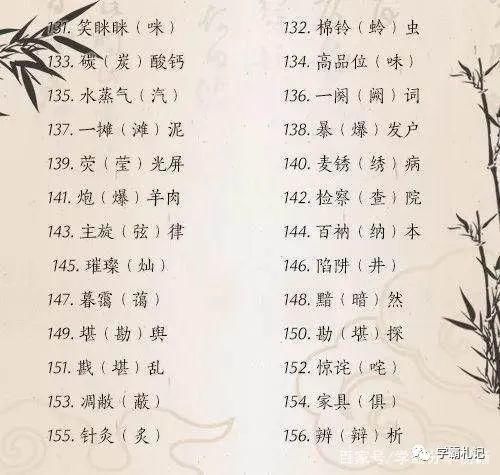 131. 笑眯眯（咪） 132. 棉铃（蛉）虫
133. 碳（炭）酸钙 134. 高品位（味）
135. 水蒸气（汽） 136. 一阕（阙）词
137. 一摊（滩）泥 138. 暴（爆）发户
139. 荧（莹）光屏 140. 麦锈（绣）病
141. 炮（爆）羊肉 142. 检察（查）院
143. 主旋（弦）律 144. 百衲（纳）本
145. 璀璨（灿） 146. 陷阱（井）
147. 暮霭（蔼） 148. 黯（暗）然
149. 堪（勘）舆 150. 勘（堪）探
151. 戡（堪）乱 152. 惊诧（咤）
153. 凋敝（蔽） 154. 家具（俱）
155. 针灸（炙） 156. 辨（辩）析
学霸札记